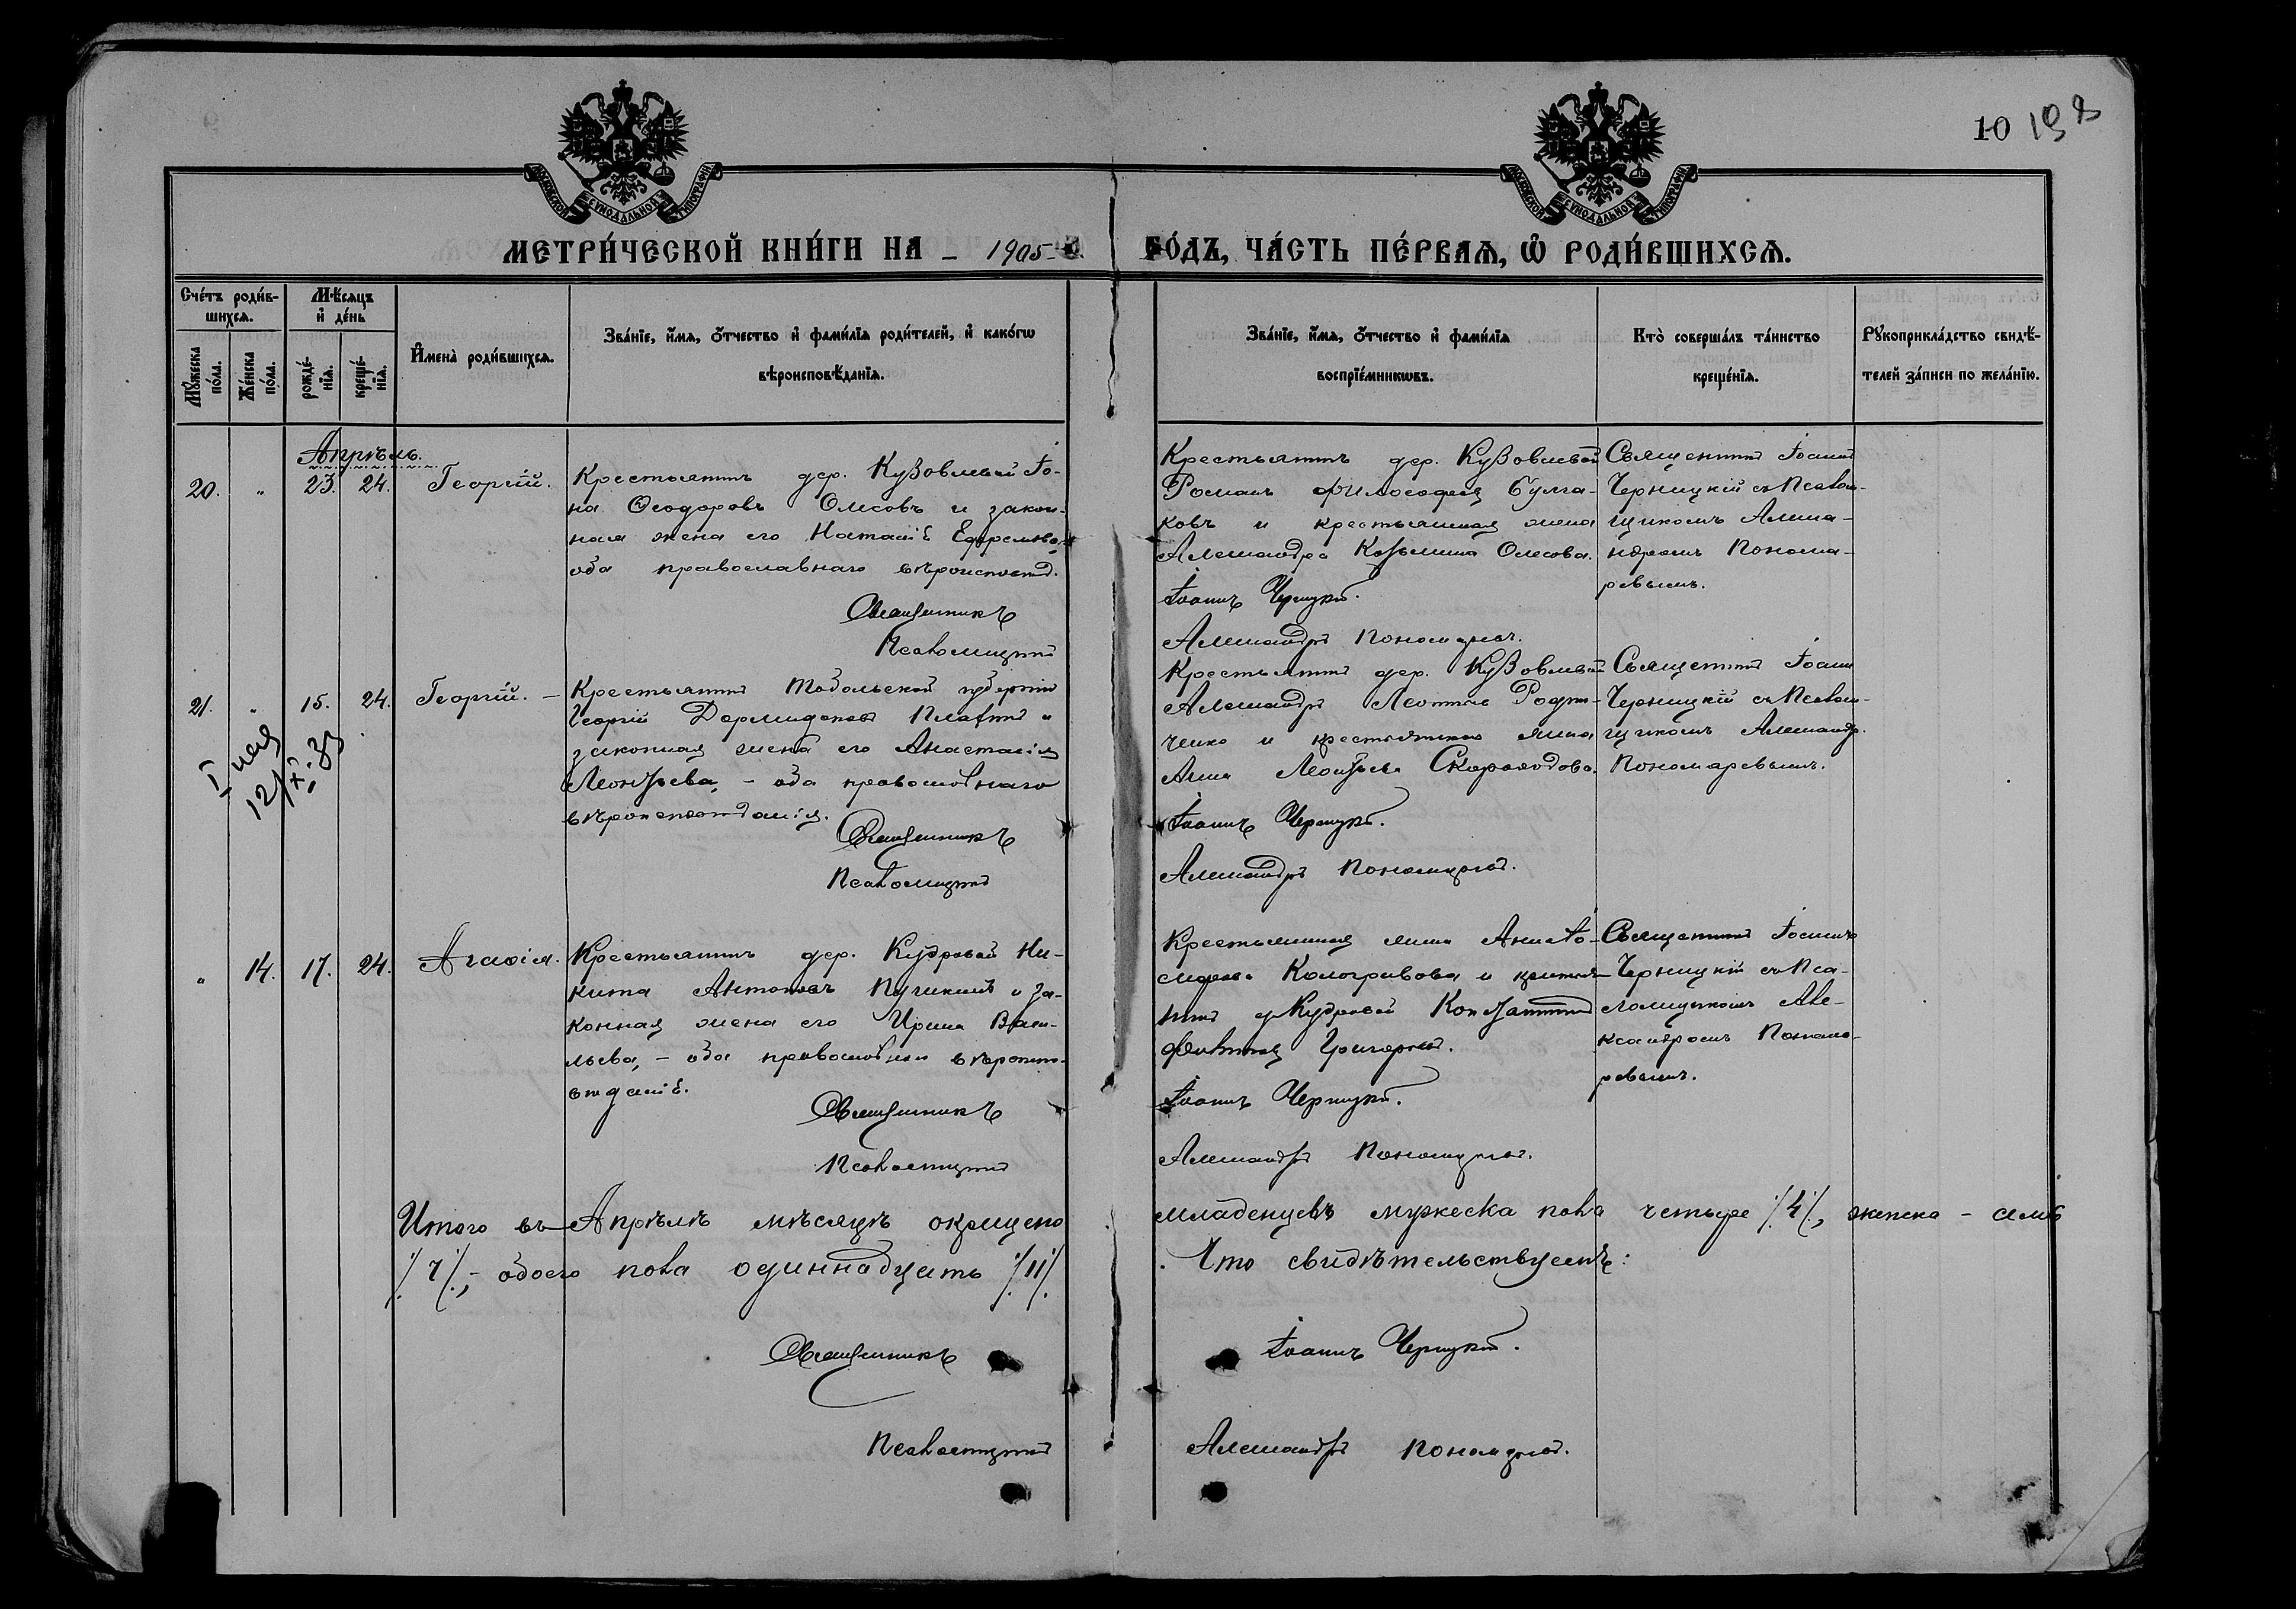 10 193
МОСКОВСКОЙ СѴНОДАЛЬНОЙ ТИПОГРАФІИ
МОСКОВСКОЙ СѴНОДАЛЬНОЙ ТИПОГРАФІИ
МЕТРИ́ЧЕСКОЙ КНИ́ГИ НА 1905
ГО́ДЪ, ЧА́СТЬ ПЕ́РВАѦ, Ѽ РОДИ́ВШИХСѦ.
Сче́тъ роди́в-
шихсѧ.
Мѣ́сѧцъ
и҆ де́нь
Мꙋ́жеска
по́ла.
Же́нска
по́ла.
рожде́-
нїѧ.
креще́-
нїѧ.
И҆мена̀ роди́вшихсѧ.
Зва́нїе, и҆́мѧ, ѻ҆́тчество и҆ фами́лїѧ роди́телей, и҆ како́гѡ
вѣроисповѣ́данїѧ.
Зва́нїе, и҆́мѧ, ѻ҆́тчество и҆ фами́лїѧ
воспрїе́мникѡвъ.
Кто̀ соверша́лъ та́инство
креще́нїѧ.
Рꙋкоприкла́дство свидѣ́-
телей за́писи по жела́нїю.
Апрѣль.
20. " 23. 24. Георгій.
Крестьянинъ дер. Кузовлевой Іо-
на Ѳеодоровъ Олисовъ и закон-
ная жена его Наталія Ефремова,
оба православнаго вѣроисповѣд.
Священникъ
Псаломщикъ
Крестьянинъ дер. Кузовлевой
Романъ
ковъ и крестьянская жена
Александра Козьмина Олисова.
Іоаннъ Черницкій.
Александръ Пономаревъ.
Священникъ Іоаннъ
Черницкій съ Псалом-
щикомъ Алекса-
ндромъ Понома-
ревымъ.
21. " 15. 24. Георгій.
Крестьянинъ Тобольской губерніи
Георгій и
законная жена его Анастасія
Леонтьева, - оба православнаго
вѣроисповѣданія.
Священникъ
Псаломщикъ
Крестьянинъ дер. Кузовлевой
Александръ Леонтьевъ Родю-
ченко и крестьянская жена
Анна Леонтьева Скороходова.
Іоаннъ Черницкій.
Александръ Пономаревъ.
Священникъ Іоаннъ
Черницкій съ Псалом-
щикомъ Александр.
Пономаревымъ.
" 14. 17. 24. Агаѳія.
Крестьянинъ дер. Кудровой Ни-
кита Антоновъ и за-
конная жена его Ирина Васи-
льева, - оба православнаго вѣроиспо-
вѣданія.
Священникъ
Псаломщикъ
Крестьянская жена Анна
Кологривова и крестья-
нинъ д. Кудровой Константинъ
Григорьевъ.
Іоаннъ Черницкій.
Александръ Пономаревъ.
Священникъ Іоаннъ
Черницкій съ Пса-
ломщикомъ Але-
ксандромъ Понома-
ревымъ.
Итого въ Апрѣлѣ мѣсяцѣ окрещено младенцевъ мужеска пола четыре /4/, женска - семь
/7/, - обоего пола одиннадцать /11/. Что свидѣтельствуемъ:
Священникъ Іоаннъ Черницкій.
Псаломщикъ Александръ Пономаревъ.